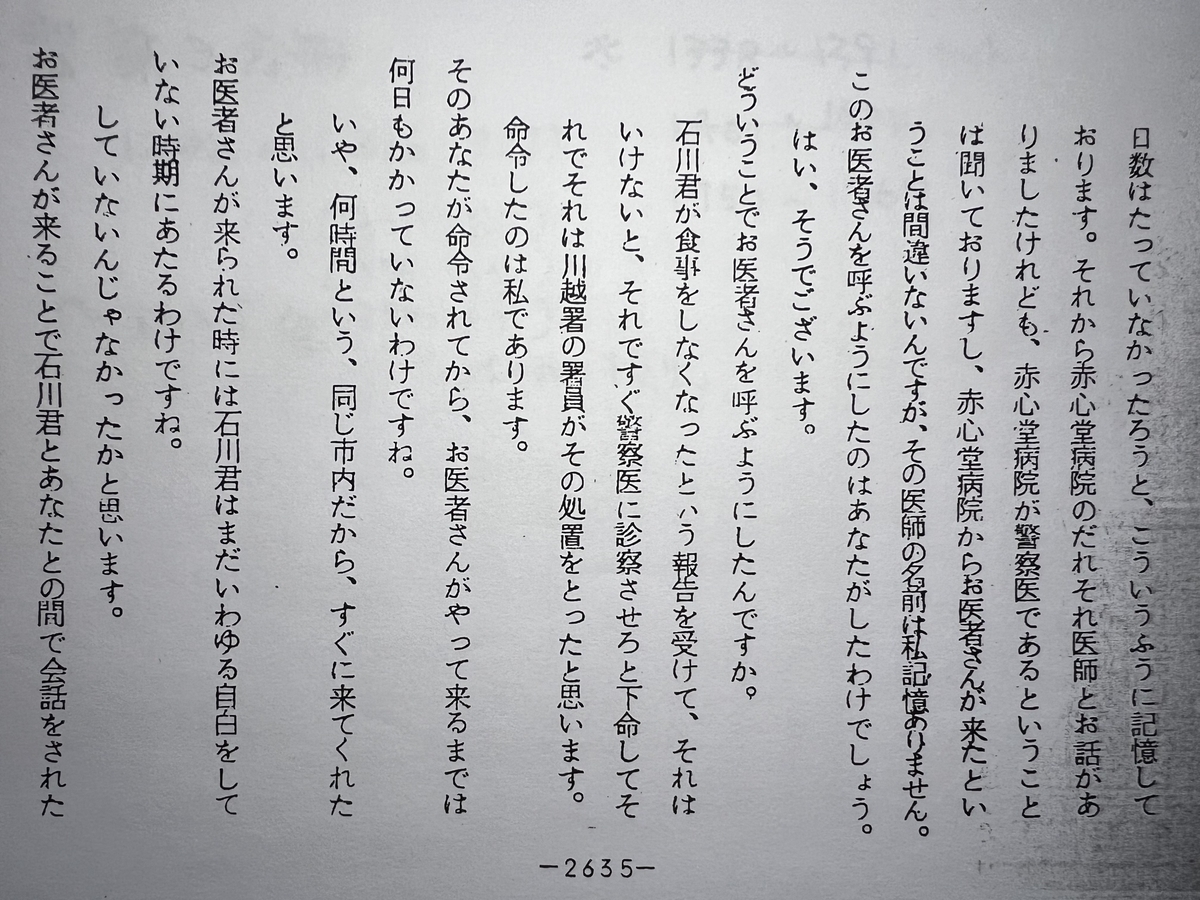 日数はたっていなかったろうと、こういうふうに記憶して
おります。それから赤心堂病院のだれそれ医師とお話があ
りましたけれども、赤心堂病院が警察医であるということ
は聞いておりますし、赤心堂病院からお医者さんが来たとい
うことは間違いないんですが、その医師の名前は私記憶ありません。
このお医者さんを呼ぶようにしたのはあなたがしたわけでしょう。
はい、そうでございます。
どういうことでお医者さんを呼ぶようにしたんですか。
石川君が食事をしなくなったという報告を受けて、それは
いけないと、それですぐ警察医に診察させろと下命してそ
れでそれは川越署の署員がその処置をとったと思います。
命令したのは私であります。
そのあなたが命令されてから、お医者さんがやって来るまでは
何日もかかっていないわけですね。
いや、何時間という、同じ市内だから、すぐに来てくれた
と思います。
お医者さんが来られた時には石川君はまだいわゆる自白をして
いない時期にあたるわけですね。
していないんじゃなかったかと思います。
お医者さんが来ることで石川君とあなたとの間で会話をされた
—2635—